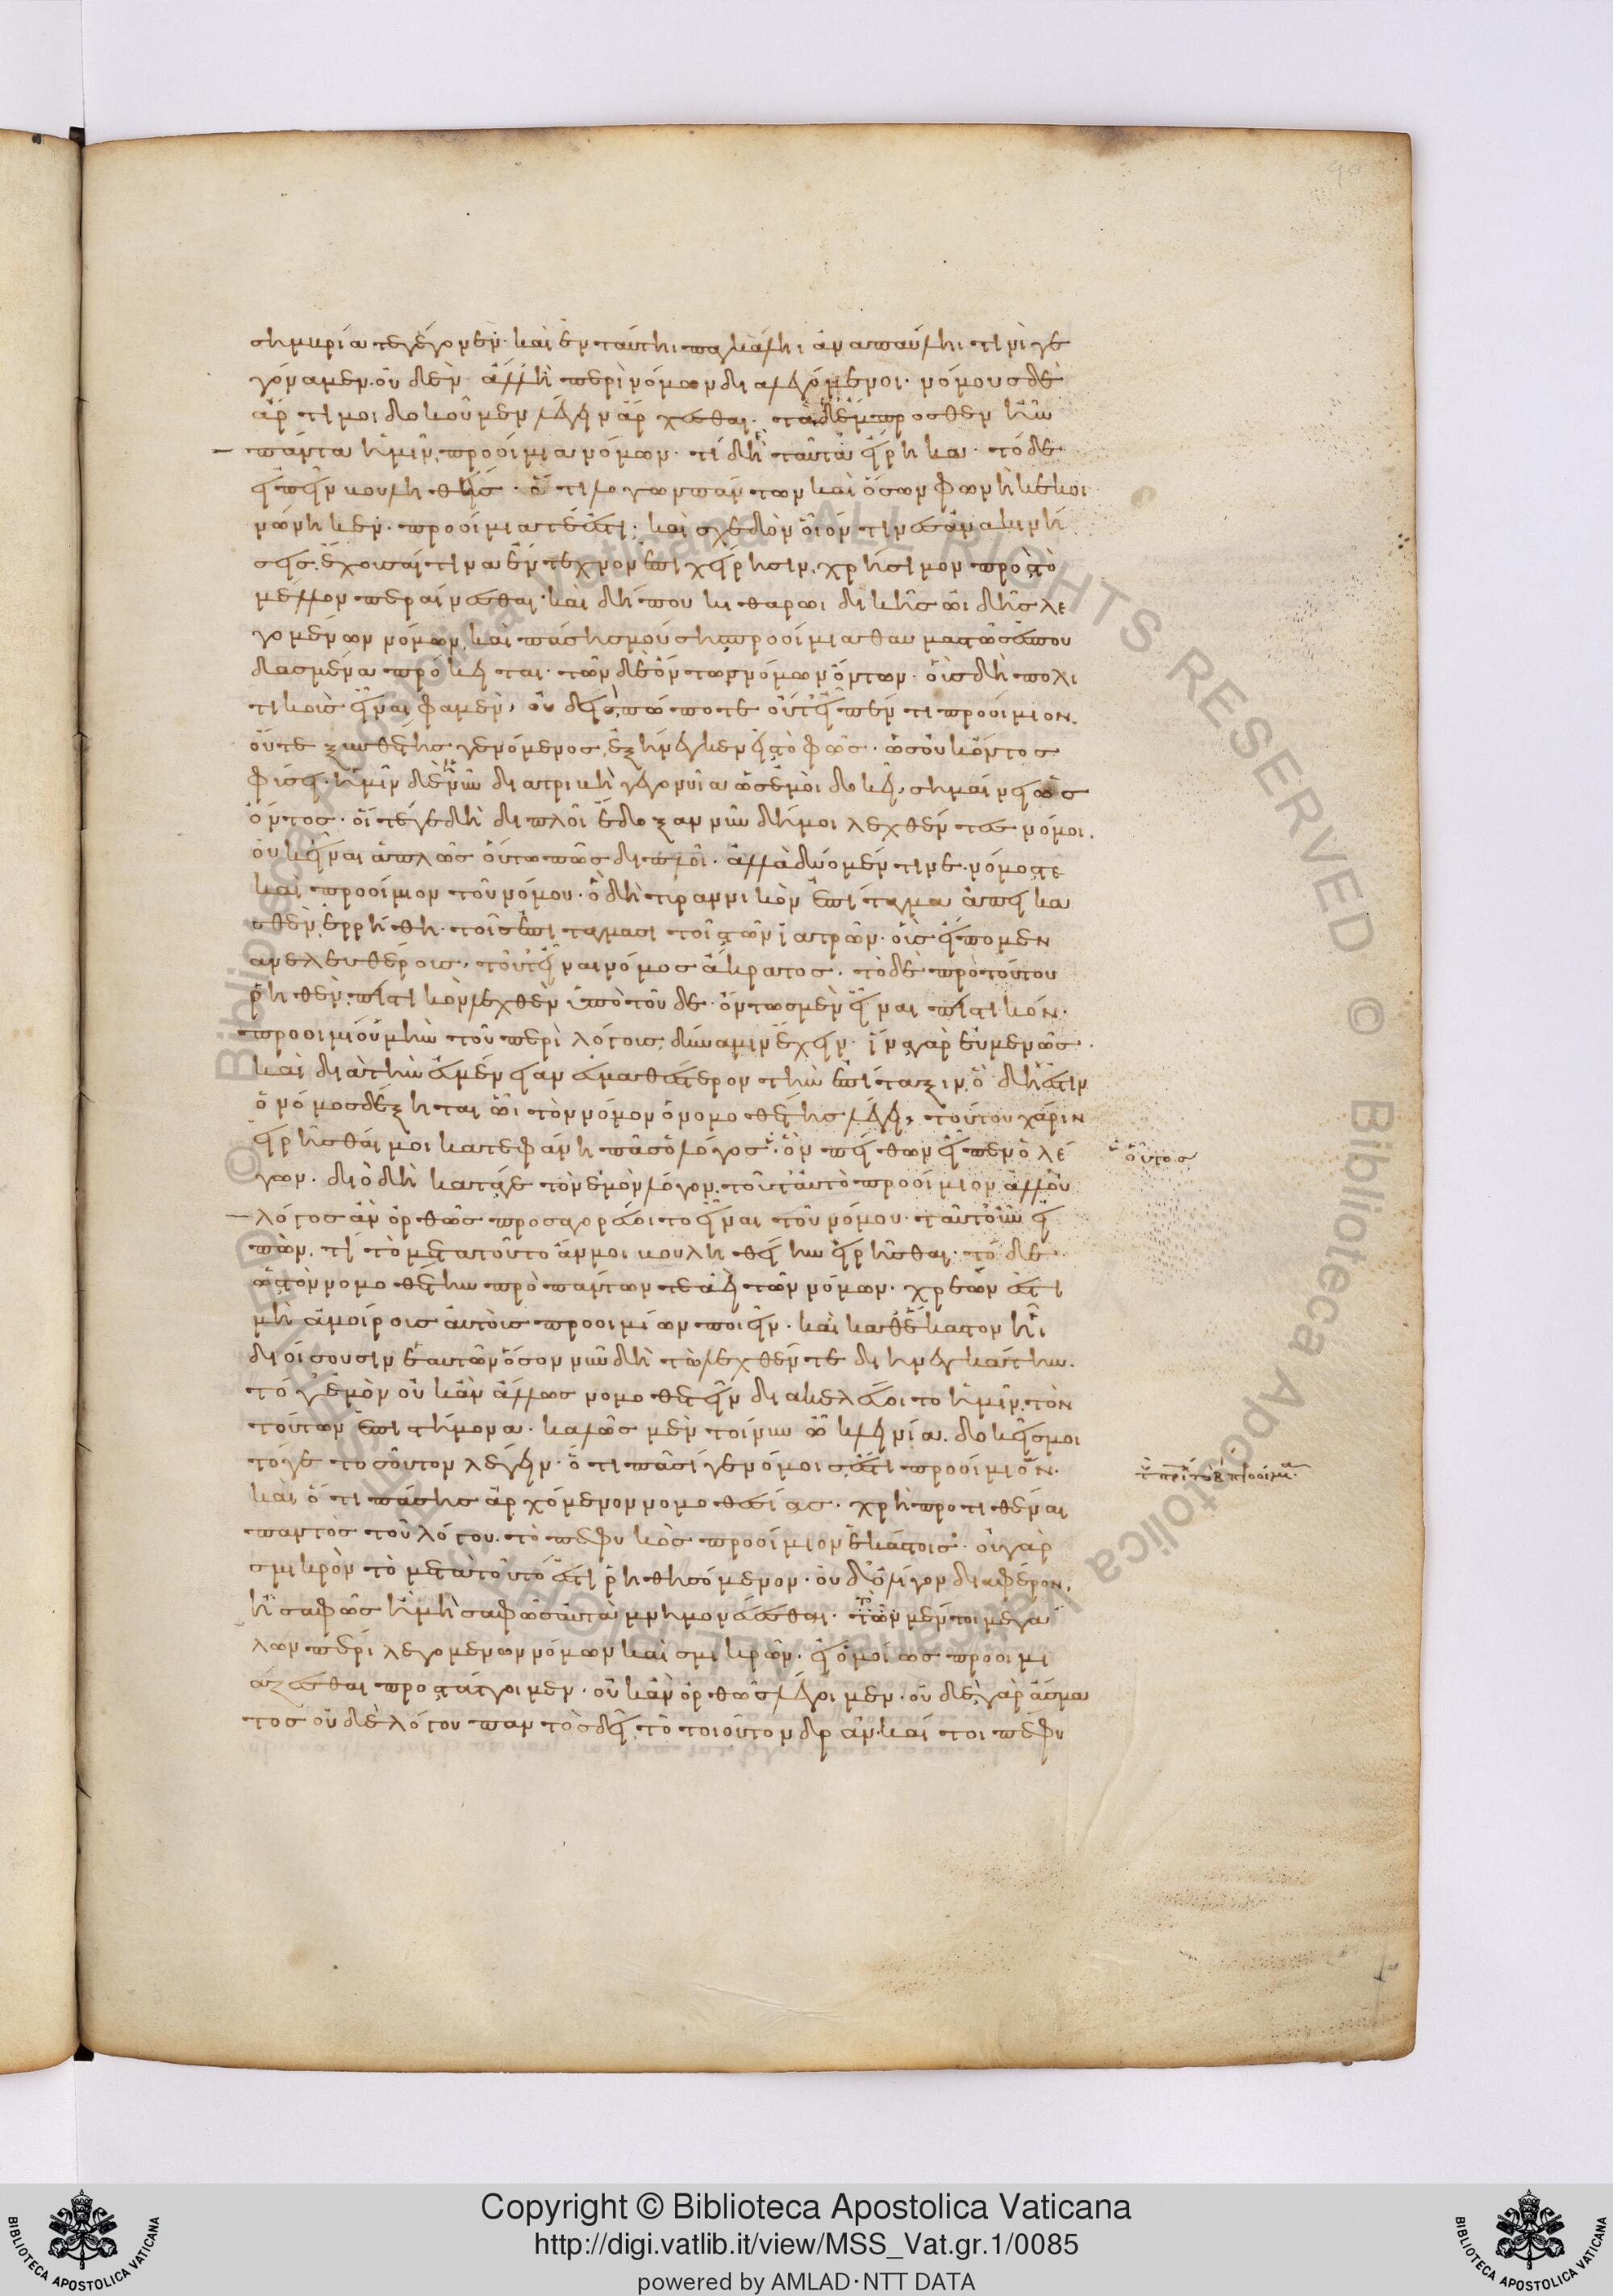 σημβρία τε γέγονεν· καὶ ἐν ταύτηι παγκάληι ἀναπαύληι τινὶ γε
γόναμεν· οὐδὲν ἀλλ' ἢ περὶ νόμων διαλεγόμενοι· νόμους δὲ
ἄρτι μοι δοκοῦμεν λέγειν ἄρχεσθαι· τὰ δ' ἔμπροσθεν ἦν
πάντα ἡμῖν προοίμια νόμων· τί δὴ ταῦτα εἴρηκα· τόδε
εἰπεῖν βουληθείς· ὅτι λόγων πάντων καὶ ὅσων φωνὴ κεκοι
νώνηκεν· προοίμιά τέ ἐστι· καὶ σχεδὸν οἷόν τινες ἀνακινή
σεις· ἔχουσαί τινα ἔντεχνον ἐπιχείρησιν, χρήσιμον πρὸς τὸ
μέλλον περαίνεσθαι· καὶ δή που κιθαρωιδικῆς ὠιδῆς λε
γομένων νόμων, καὶ πάσης μούσης προοίμια θαυμαστῶς ἐσπου
δασμένα πρόκειται· τῶν δὲ ὄντως νόμων ὄντων· οὓς δὴ πολι
τικοὺς εἶναι φαμέν, οὐδεὶς πώποτε οὔτ' εἶπέν τι προοίμιον.
οὔτε ξυνθέτης γενόμενος ἐξήνεγκεν εἰς τὸ φῶς· ὡς οὐκ ὄντος
φύσει· ἡμῖν δὲ ἡ νῦν διατριβὴ γεγονυῖα ὡς ἐμοὶ δοκεῖ, σημαίνει ὡς
ὄντος· οἵ τέ γε δὴ διπλοῖ ἔδοξαν νῦν δή μοι λεχθέντες νόμοι.
οὐκ εἶναι ἁπλῶς οὕτω πῶς διπλοῖ· ἀλλὰ δύο μέν τινε· νόμος τε
καὶ προοίμιον τοῦ νόμου· ὃ δὴ τυραννικὸν ἐπίταγμα ἀπεικα
σθὲν ἐρρήθη· τοῖς ἐπιτάγμασι τοῖς τῶν ἰατρῶν· οὓς εἴπομεν
ἀνελευθέρους, τοῦτ' εἶναι νόμος ἄκρατος· τὸ δὲ πρὸ τούτου
ῥηθὲν· πιστικὸν λεχθὲν ὑπὸ τοῦδε· ὄντως μὲν εἶναι πιστικόν·
προοιμίου μὴν τοῦ περὶ λόγους δύναμιν ἔχειν· ἵνα γὰρ εὐμενῶς
καὶ διὰ τὴν εὐμένειαν εὐμαθέστερον τὴν ἐπίταξιν, ὃ δή ἐστιν
ὁ νόμος δέξηται ὧι τὸν νόμον ὁ νομοθέτης λέγει, τούτου χάριν
εἰρῆσθαί μοι κατεφάνη πᾶς ὁ λόγος· ὃν πείθων εἶπεν ὁ λέ
γων· διὸ δὴ κατά γε τὸν ἐμὸν λόγον· τοῦτ' αὐτὸ προοίμιον ἀλλ' οὐ
λόγος ἂν ὀρθῶς προσαγορεύοιτο εἶναι τοῦ νόμου· ταῦτ' οὖν εἰ
πών· τί τὸ μετὰ τοῦτο ἄν μοι βουληθείην εἰρῆσθαι· τόδε
ὡς τὸν νομοθέτην πρὸ πάντων τε ἀεὶ τῶν νόμων· χρεών ἐστι
μὴ ἀμοίρους αὐτοὺς προοιμίων ποιεῖν· καὶ καθ' ἕκαστον ἧι
διοίσουσιν ἑαυτῶν ὅσον νῦν δὴ τὼ λεχθέντε διηνεγκάτην.
τό γ' ἐμὸν οὐκ ἂν ἄλλως νομοθετεῖν διακελεύοιτο ἡμῖν, τὸν
τούτων ἐπιστήμονα· καλῶς μὲν τοίνυν ὦ κλεινία· δοκεῖς μοι
τό γε τοσοῦτον λέγειν· ὅτι πᾶσί γε νόμοις ἐστὶ προοίμιον·
καὶ ὅτι πάσης ἀρχόμενον νομοθεσίας· χρὴ προτιθέναι
παντὸς τοῦ λόγου· τὸ πεφυκὸς προοίμιον ἑκάστοις· οὐ γὰρ
σμικρὸν τὸ μετὰ τοῦτό ἐστι ῥηθησόμενον· οὐδ' ὀλίγον διαφέρον,
ἢ σαφῶς ἢ μὴ σαφῶς αὐτὰ μνημονεύεσθαι· τῶν μέντοι μεγά
λων πέρι λεγομένων νόμων καὶ σμικρῶν· εἰ ὁμοίως προοιμι
άζεσθαι προστάττοιμεν· οὐκ ἂν ὀρθῶς λέγοιμεν· οὐδὲ γὰρ ᾄσμα
τος οὐδὲ λόγου παντὸς δεῖ τὸ τοιοῦτον δρᾶν· καί τοι πέφυ
οὗτος